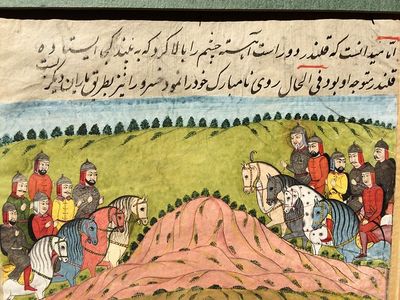 اما میدانست که قلندر دور است آهسته چشم را بالا کرد که ببیند کجا ایستاده
قلندر متوجه او بود فی الحال روی نامبارک خود را نمود خسرو را نیز بطرق یاران دیگر